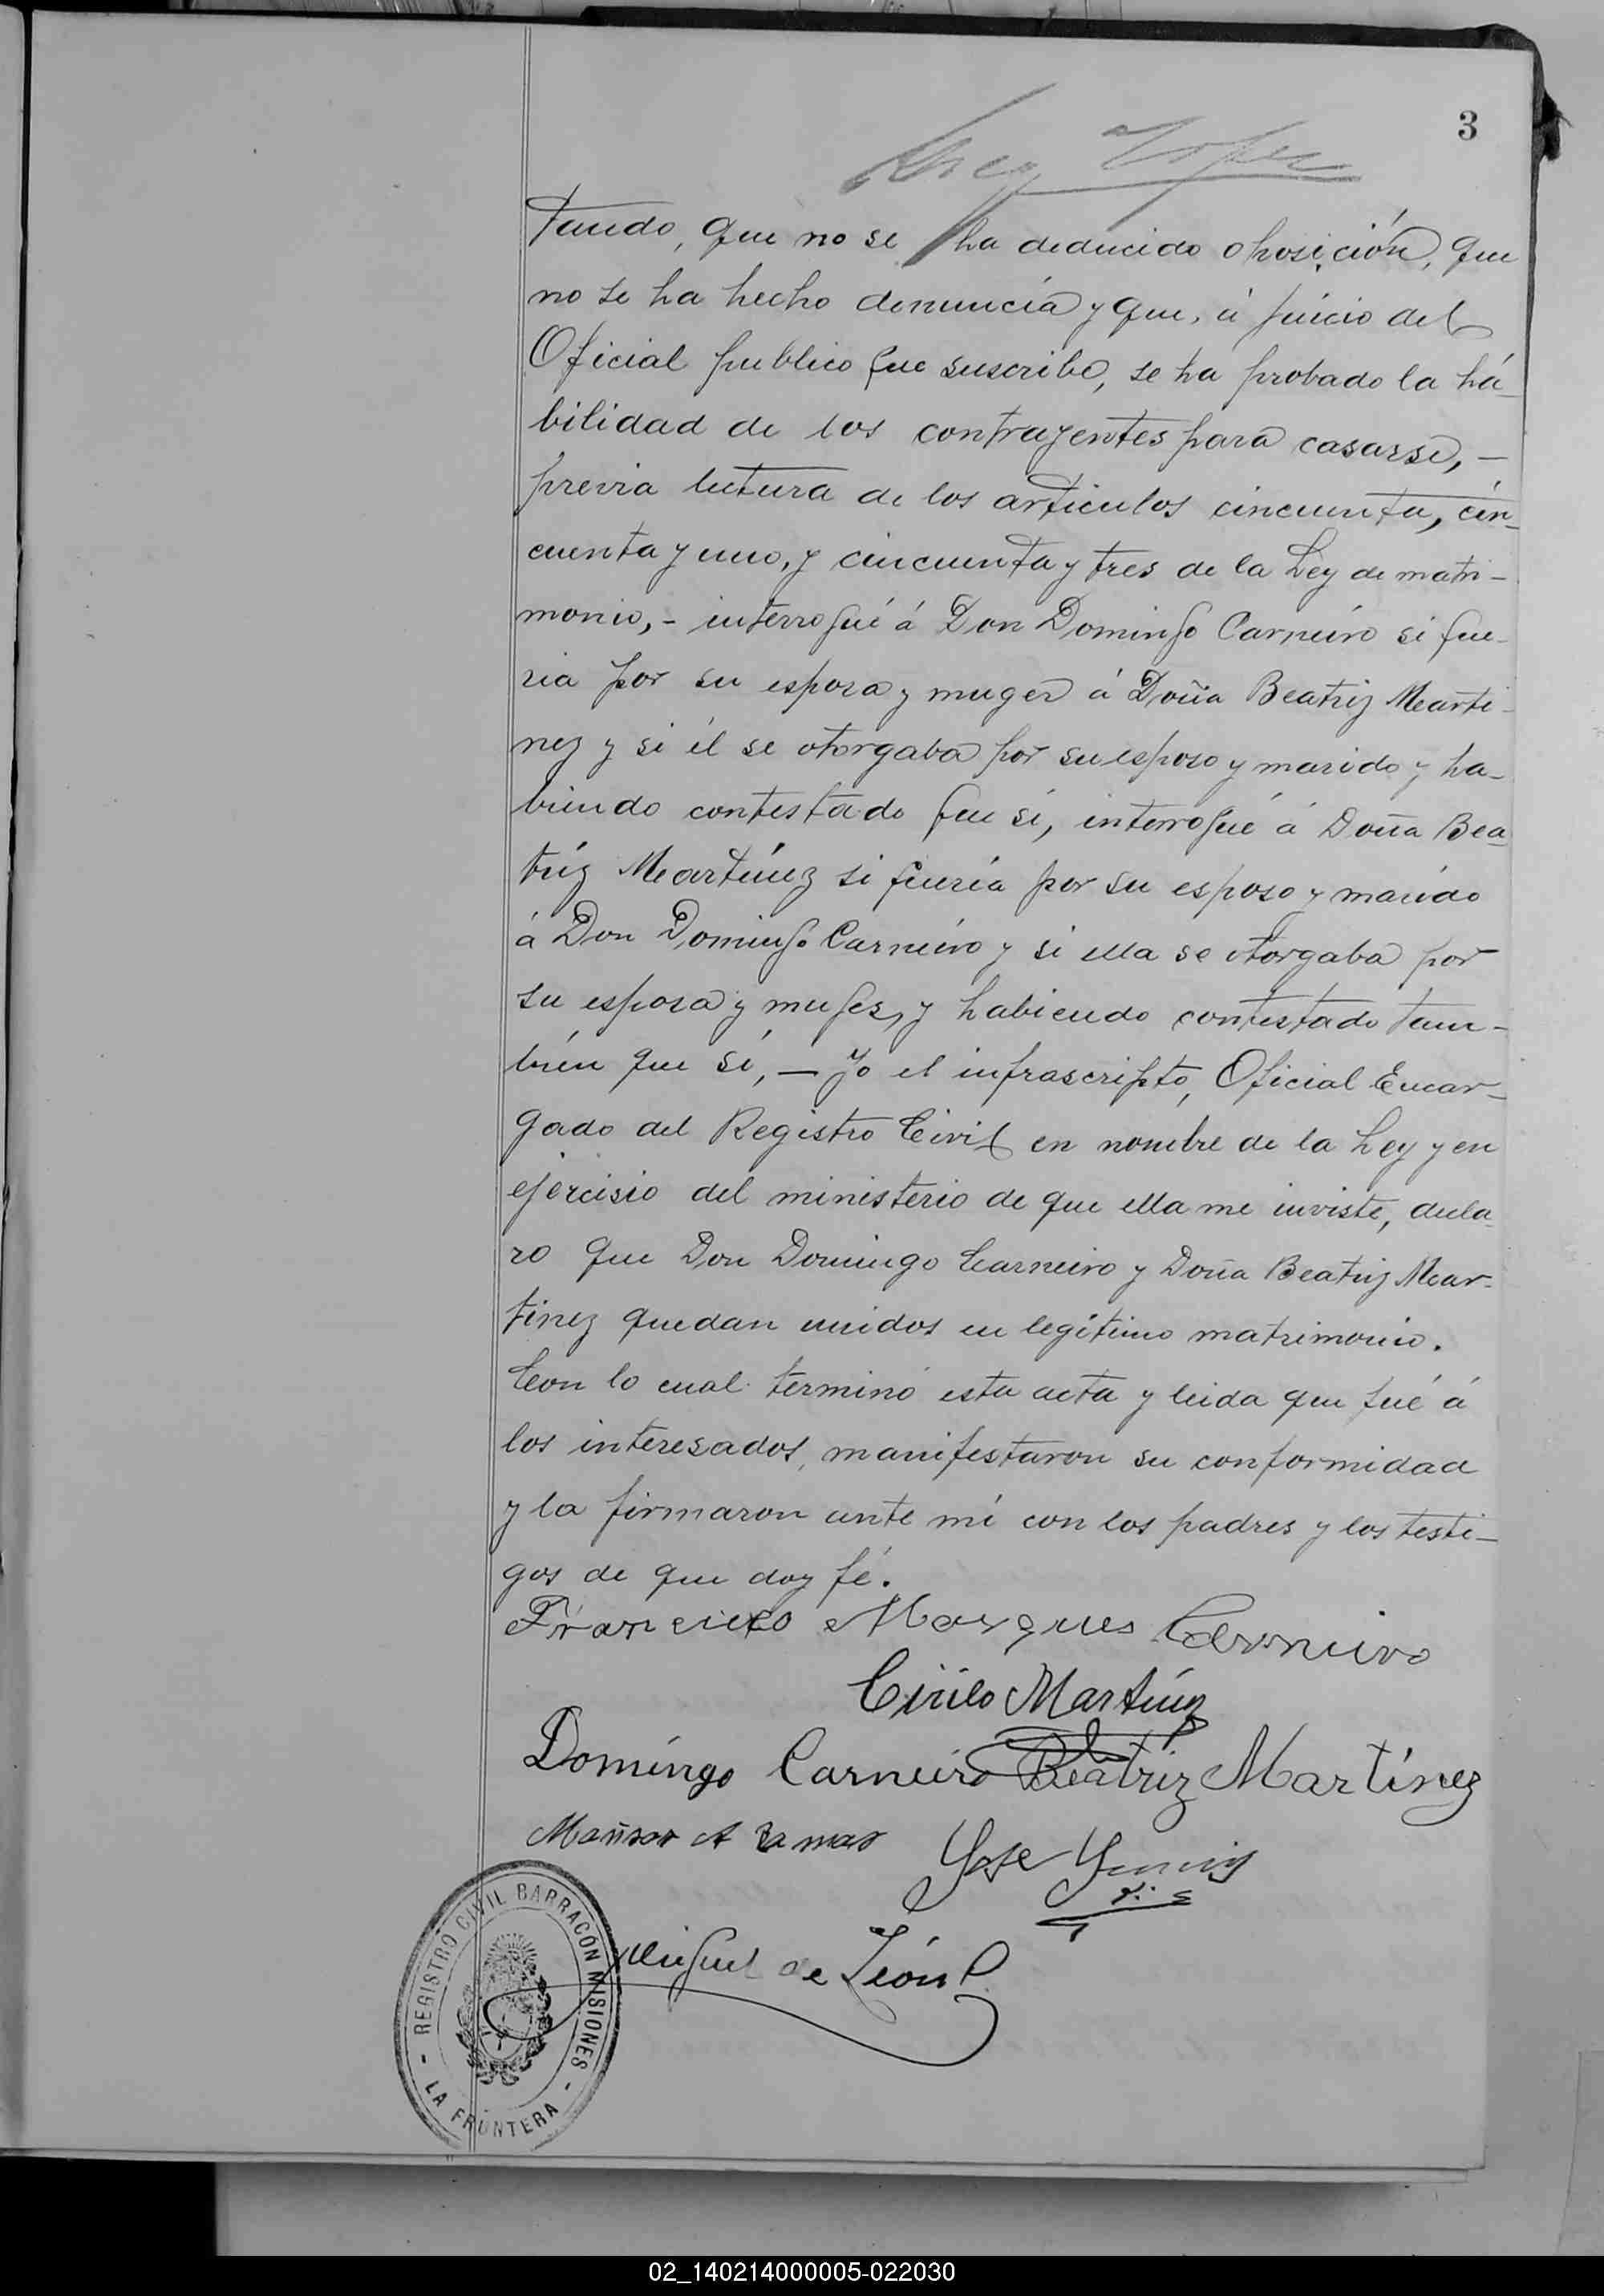 3
Lopez
tando, que no se ha deducido oposición, que
no se ha hecho denuncia y que, á juicio del
Oficial publico que suscribe, se ha probado la há-
bilidad de los contrayentes para casarse, -
previa lectura de los articulos cincuenta, cin-
cuenta y uno, y cincuenta y tres de la Ley de matri-
monio, - interrogué á Don Domingo Carneiro si que-
ria por su esposa y muger á Doña Beatriz Marti-
nez y si él se otorgaba por su esposo y marido y ha-
biendo contestado que sí, interrogué á Doña Bea-
tríz Martínez si quería por su esposo y marido
á Don Domingo Carneiro y si ella se otorgaba por
su esposa y muger, y habiendo contestado tam-
bién que sí, - Yo el infrascripto, Oficial Encar-
gado del Registro Civil en nombre de la Ley y en
ejercisio del ministerio de que ella me inviste, decla-
ro que Don Domingo Carneiro y Doña Beatriz Mar-
tinez quedan unidos en legítimo matrimonio.
Con lo cual terminó esta acta y leida que fué á
los interesados, manifestaron su conformidad
y la firmaron ante mí con los padres y los testi-
gos de que doy fé.
Francisco Marques Carneiro
Cirilo Martínez
Domíngo Carneiro Beatríz Martínez
Jose
Miguel de León
REGISTRO CIVIL BARRACÓN MISIONES
- LA FRONTERA -
02_140214000005-022030